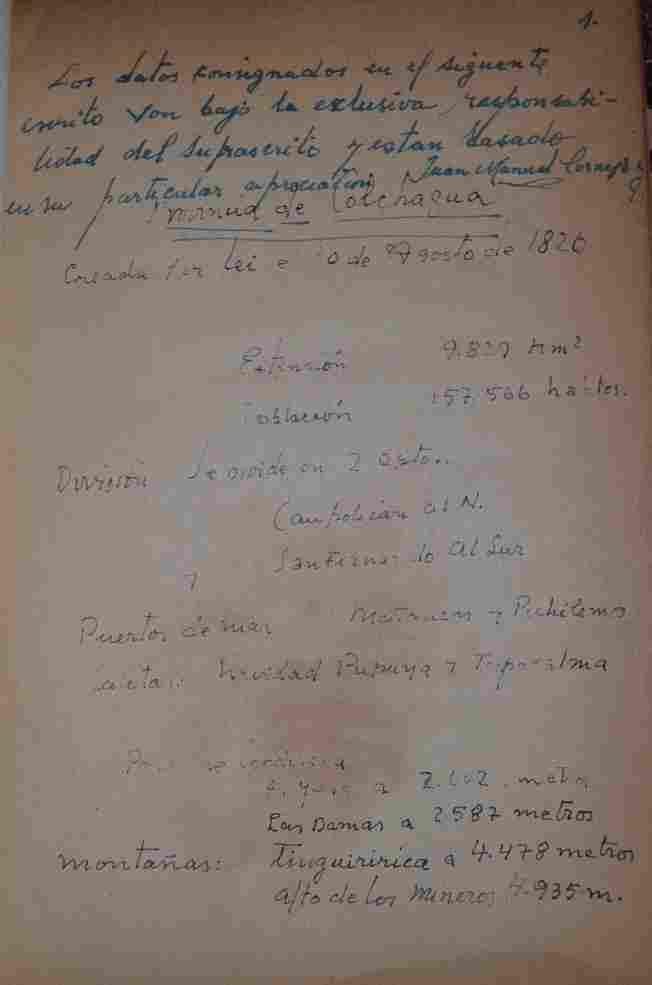 1.
Los datos consignados en el siguente
escrito van bajo la exclusiva responsabi-
lidad del suprascrito y estan basado
en su particular apreciation Juan Manuel Cornejo
de Colchagua
Creada Por Lei e 10 de Agosto de 1826
Extensión 9.829 Km²
Población 157.566 habtos.
División Se divide en 2 Dpto..
Caupolicán al N.
San Fernando al Sur
Puertos de mar Matanzas y Pichilemo
Caletas: Navidad Pupuya y Topocalma
a 2.602 metro
Las Damas a 2587 metros
montañas: Tinguiririca a 4.478 metros
alto de los mineros 4.935 m.